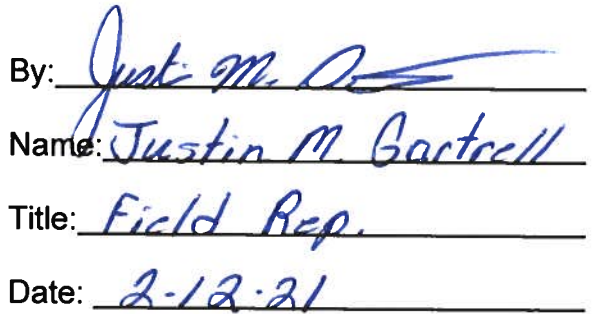 By: Justin M.
Name: Justin M. Gartrell
Title: Field Rep.
Date: 2-12-21